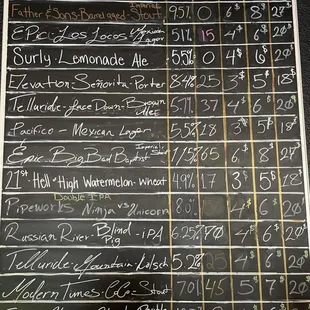 Father & Sons - Barrel aged - Imperial Stout 9.5% 0 6$ 8$ 27$
Epic - Los Locos Mexican Lager 5.1% 15 4$ 6$ 20$
Surly Lemonade Ale 5.5% 0 4$ 6$
Elevation - Señorita - Porter 8.4% 25 3$ 5$ 18$
Telluride - Face Down - Brown Ale 5.7% 37 4$ 6$ 20$
Pacifico - Mexican Lager 5.5% 18 3$ 5$ 18$
Epic Big Bad Baptist Imperial Stout 11.5% 65 6$ 8$ 27$
21st Hell or High Watermelon - Wheat 4.9% 17 3$ 5$ 18$
Pipeworks Ninja vs Unicorn Double IPA 8.0% 4$ 6$ 20$
Russian River - Blind Pig - iPA 6.25% 70 4$ 6$ 20$
Telluride - Mountain - Kölsch 5.2% 25 4$ 6$ 20$
Modern Times - Stout 45 5$ 7$ 20$